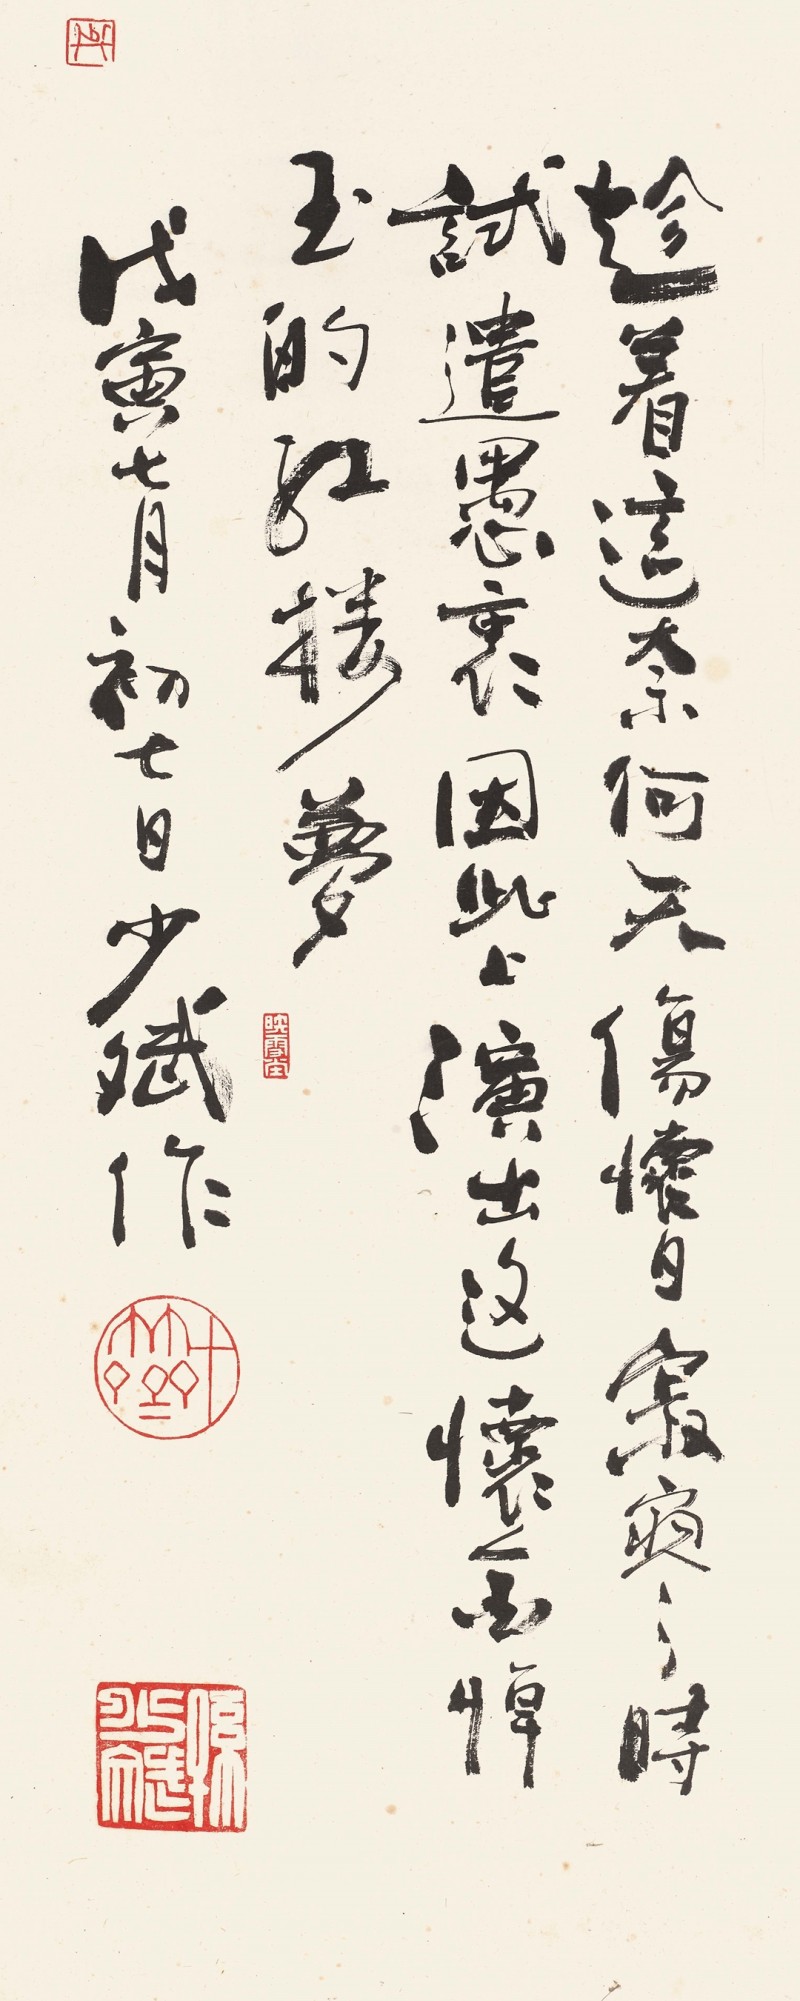 趁着這奈何天傷懷日寂寥時
試遣愚衷因此上演出这懷金悼
玉的紅樓夢
戊寅七月初七日少斌作
映雪堂
孫少斌